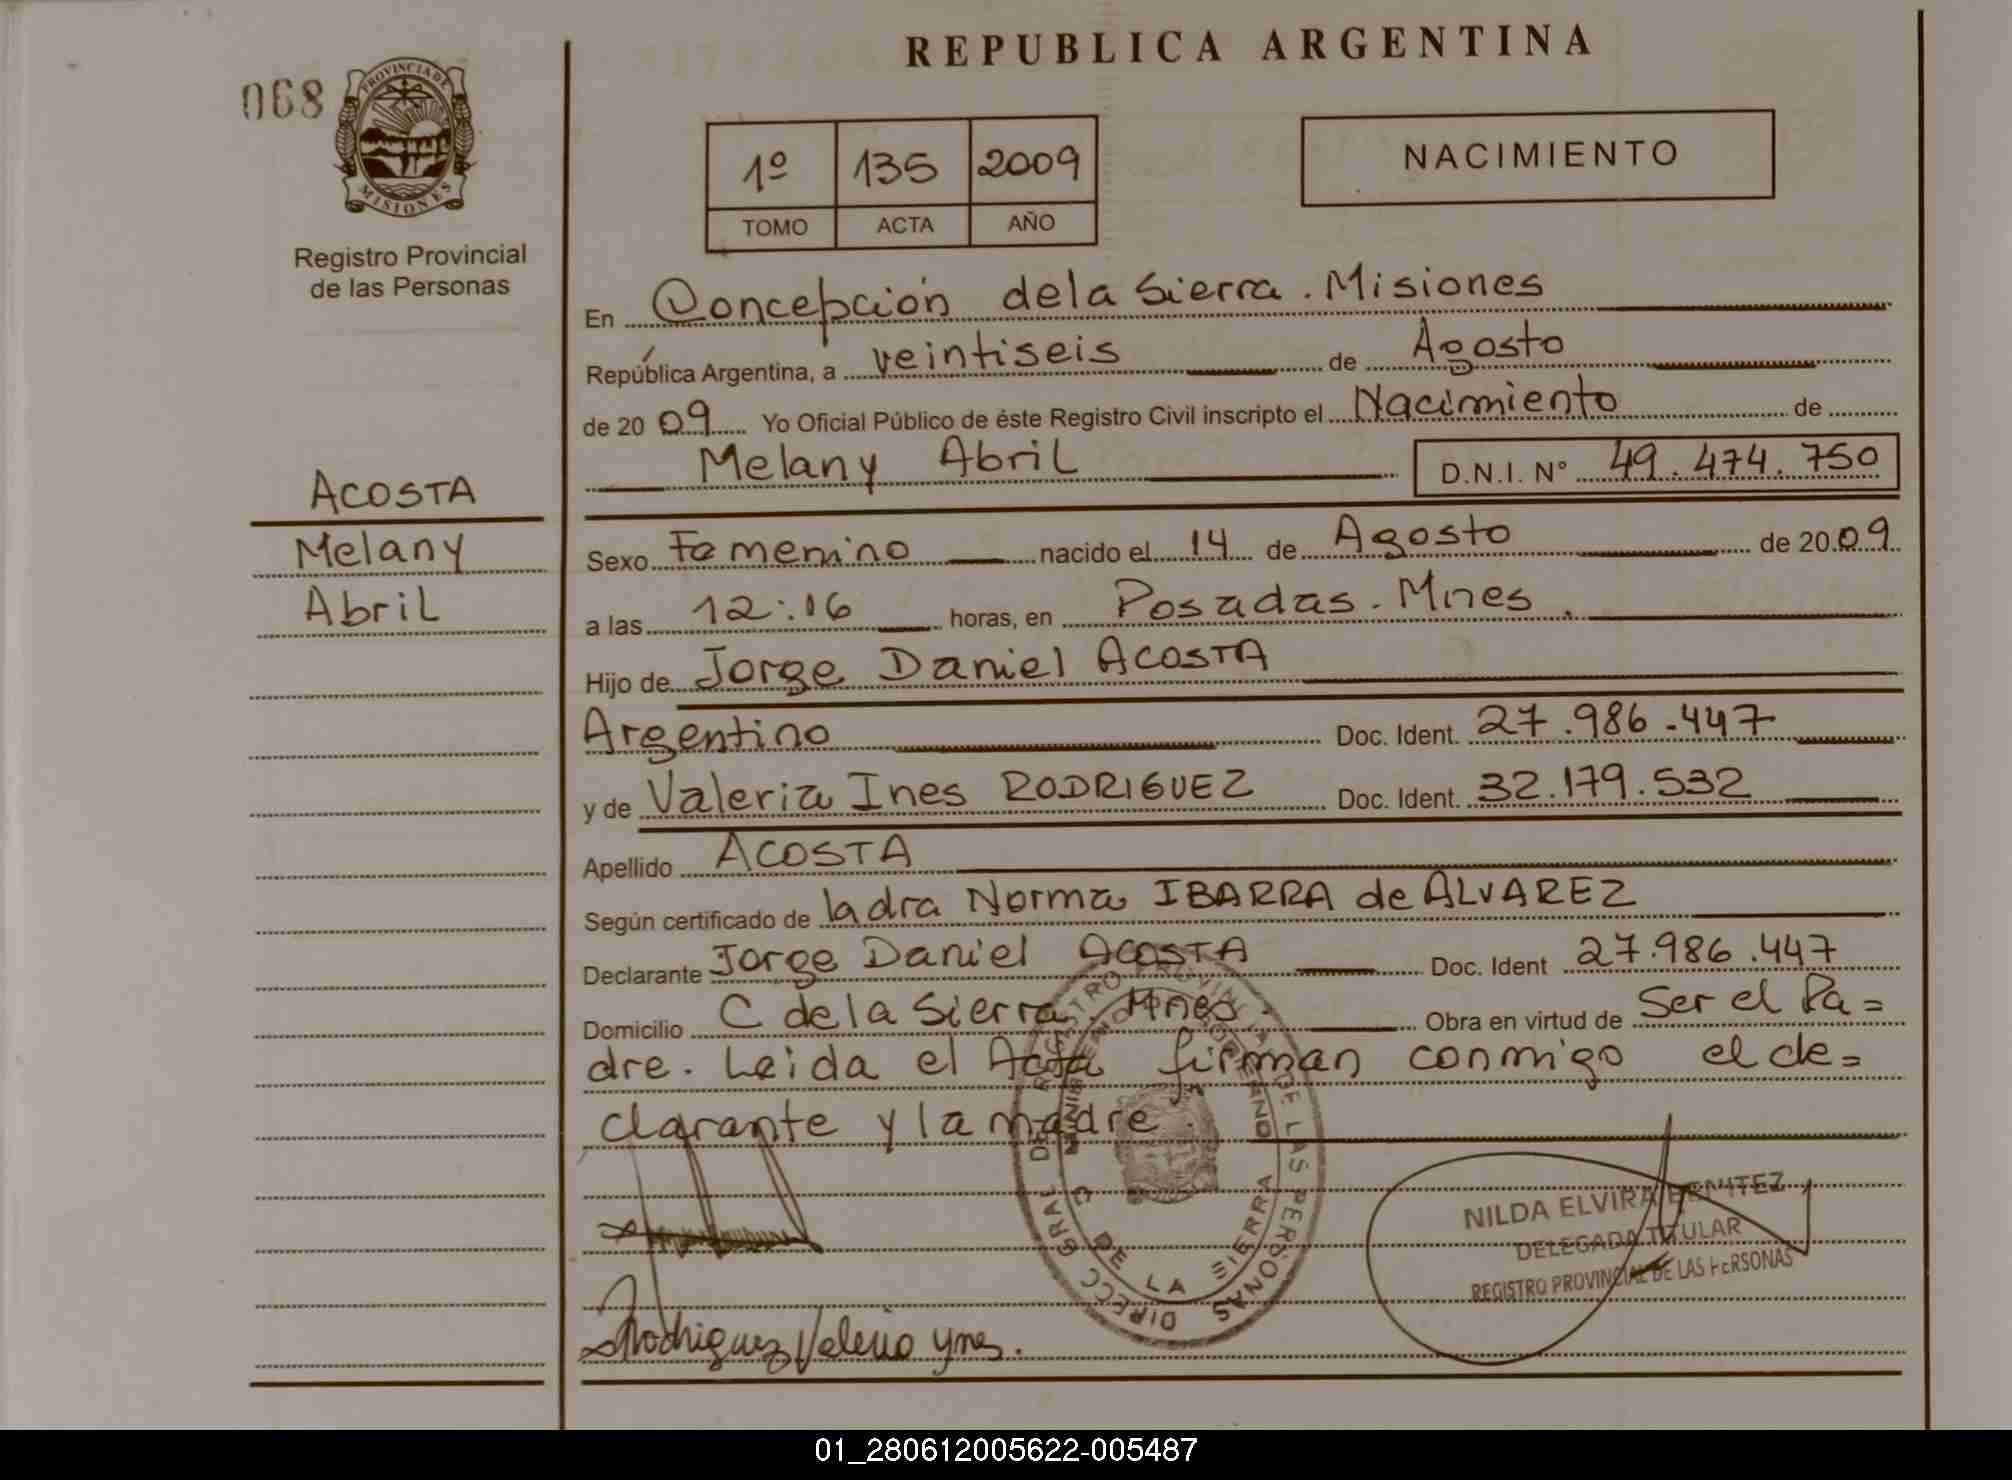 REPUBLICA ARGENTINA
068
PROVINCIA DE
MISIONES
Registro Provincial
de las Personas
1º 135 2009
TOMO ACTA AÑO
NACIMIENTO
En Concepción de la Sierra . Misiones
República Argentina, a veintiseis de Agosto
de 2009 Yo Oficial Público de éste Registro Civil inscripto el Nacimiento de
Melany Abril D.N.I. Nº 49.474.750
ACOSTA
Melany
Abril
Sexo Femenino nacido el 14 de Agosto de 2009
a las 12:16 horas, en Posadas . Mnes .
Hijo de Jorge Daniel ACOSTA
Argentino Doc. Ident. 27.986.447
y de Valeria Ines RODRIGUEZ Doc. Ident. 32.179.532
Apellido ACOSTA
Según certificado de la dra Norma IBARRA de ALVAREZ
Declarante Jorge Daniel ACOSTA Doc. Ident 27.986.447
Domicilio C de la Sierra . Mnes . Obra en virtud de Ser el Pa=
dre . Leida el Acta firman conmigo el de=
clarante y la madre .
DE LA SIERRA
DIRECC GRAL DE REGISTRO PROVINCIAL DE LAS PERSONAS
NILDA ELVIRA BENITEZ
DELEGADA TITULAR
REGISTRO PROVINCIAL DE LAS PERSONAS
Rodriguez Valeria Ynes .
01_280612005622-005487